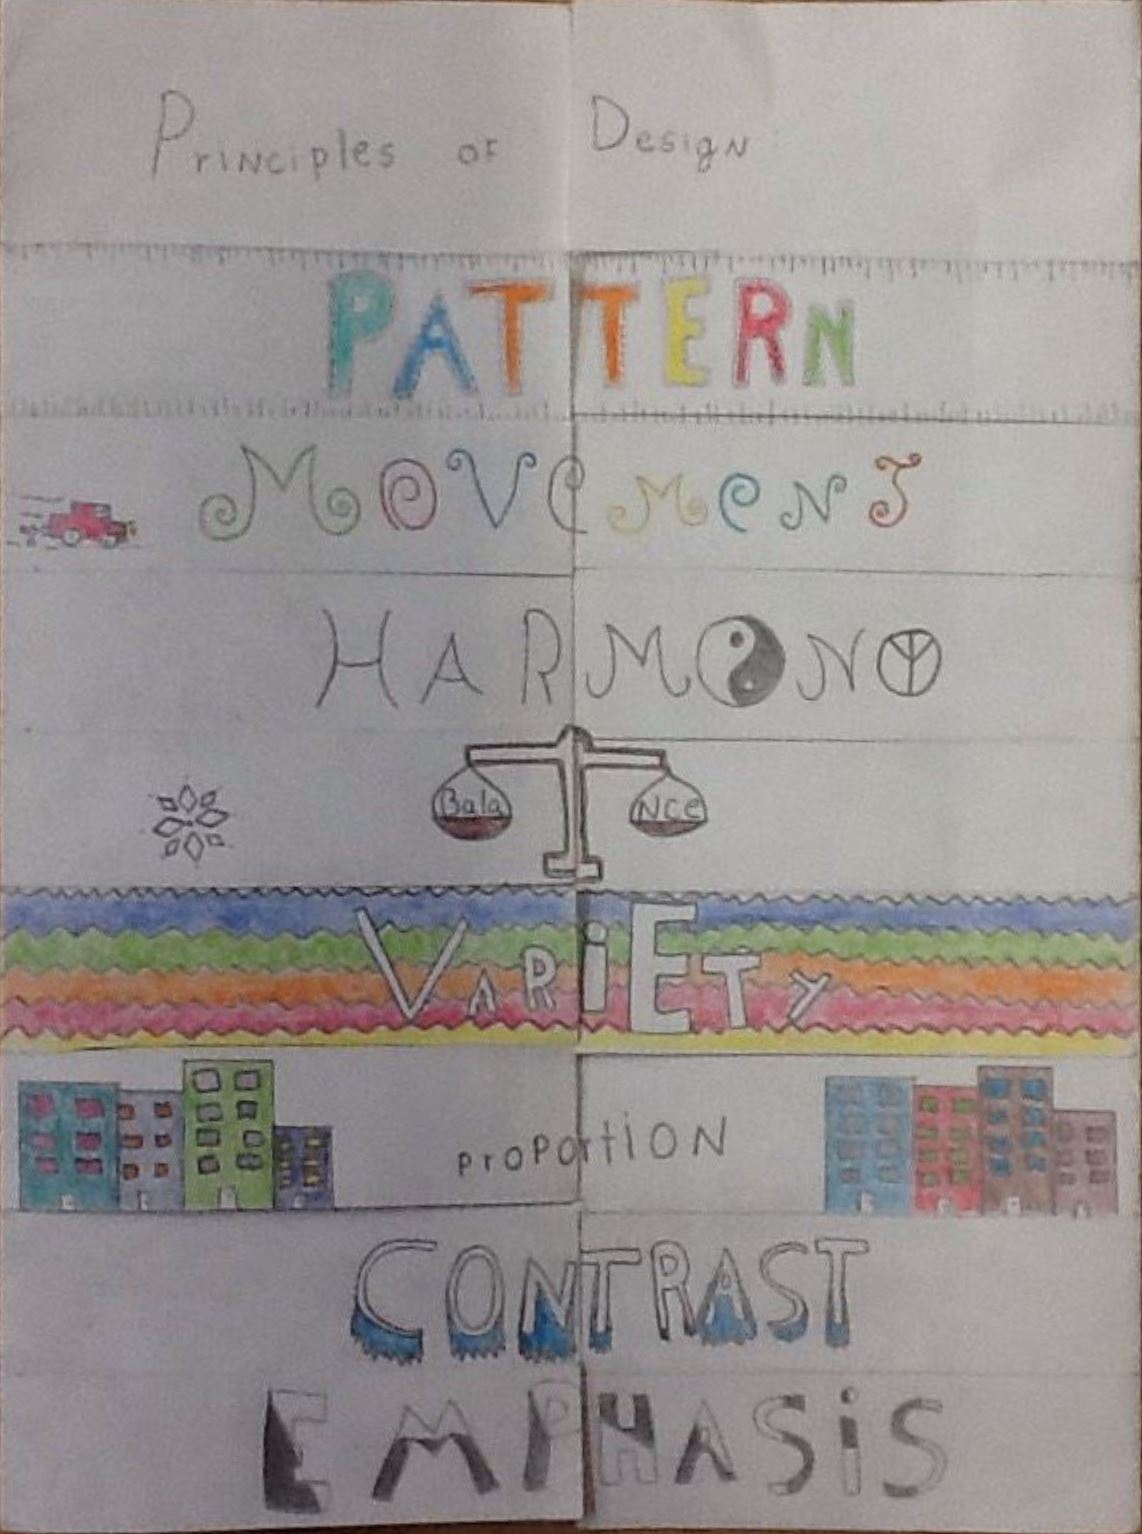 Principles of Design
PATTERN
MOVeMeNT
HARMONO
BalaNce
VARiETy
proportiON
CONTRAST
EMPHASiS